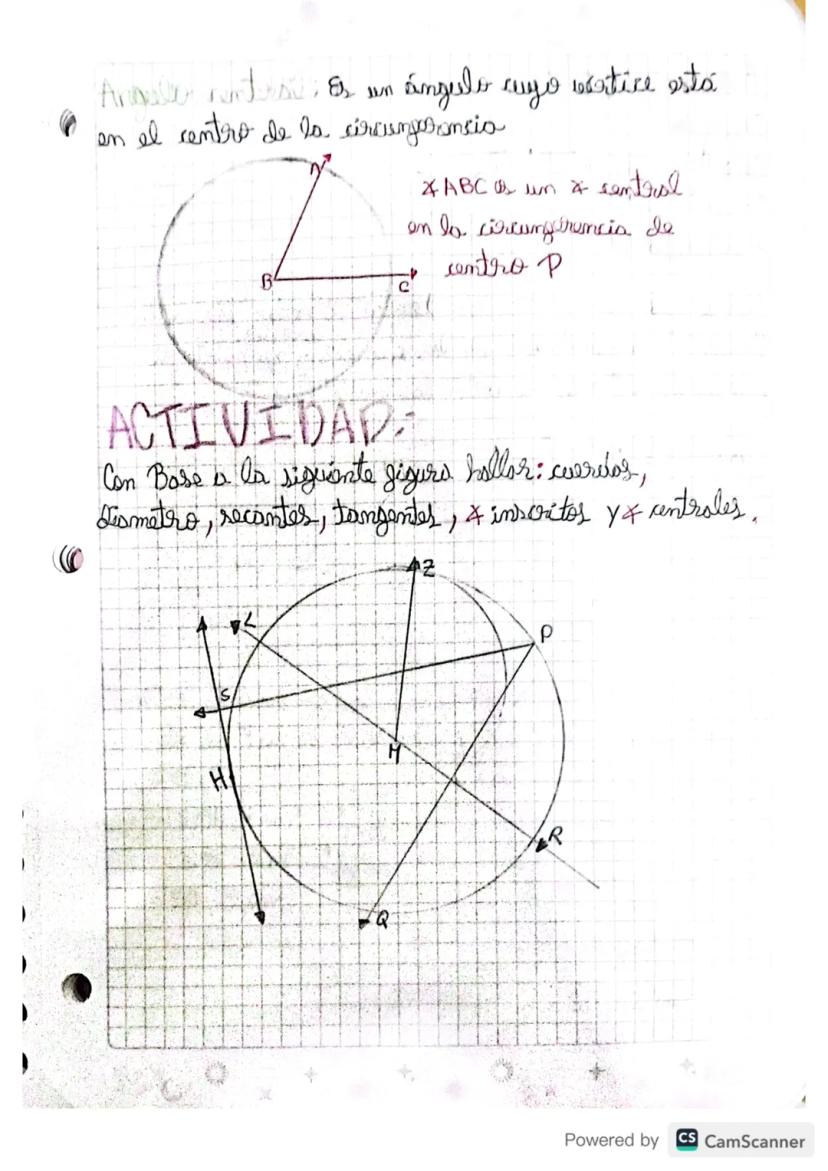 Angulo central: Es un ángulo cuyo vértice está
en el centro de la circunferencia
A
B
C
∡ABC es un ∡ central
en la circunferencia de
centro P
ACTIVIDAD:
Con Base a la siguiente figura hallar: cuerdas,
Diametro, secantes, tangentes, ∡ inscritos y ∡ centrales.
Z
L
P
S
M
H
R
Q
Powered by CS CamScanner